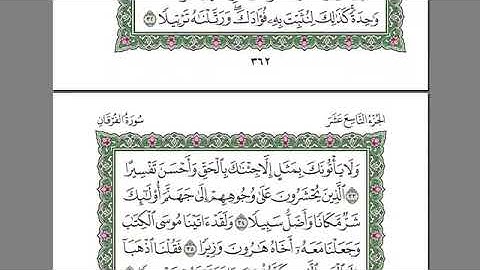 وَٰحِدَةً ۚ كَذَٰلِكَ لِنُثَبِّتَ بِهِۦ فُؤَادَكَ ۖ وَرَتَّلْنَٰهُ تَرْتِيلًا ٣٢
٣٦٢
الجزء التاسع عشر سورة الفرقان
وَلَا يَأْتُونَكَ بِمَثَلٍ إِلَّا جِئْنَٰكَ بِٱلْحَقِّ وَأَحْسَنَ تَفْسِيرًا
٣٣ ٱلَّذِينَ يُحْشَرُونَ عَلَىٰ وُجُوهِهِمْ إِلَىٰ جَهَنَّمَ أُو۟لَٰٓئِكَ
شَرٌّ مَّكَانًا وَأَضَلُّ سَبِيلًا ٣٤ وَلَقَدْ ءَاتَيْنَا مُوسَى ٱلْكِتَٰبَ
وَجَعَلْنَا مَعَهُۥٓ أَخَاهُ هَٰرُونَ وَزِيرًا ٣٥ فَقُلْنَا ٱذْهَبَآ